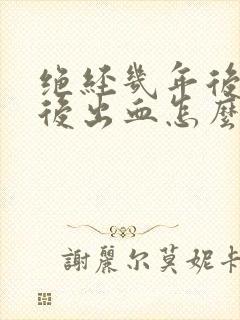 绝经幾年後
後出血怎麼
謝麗尔莫妮卡